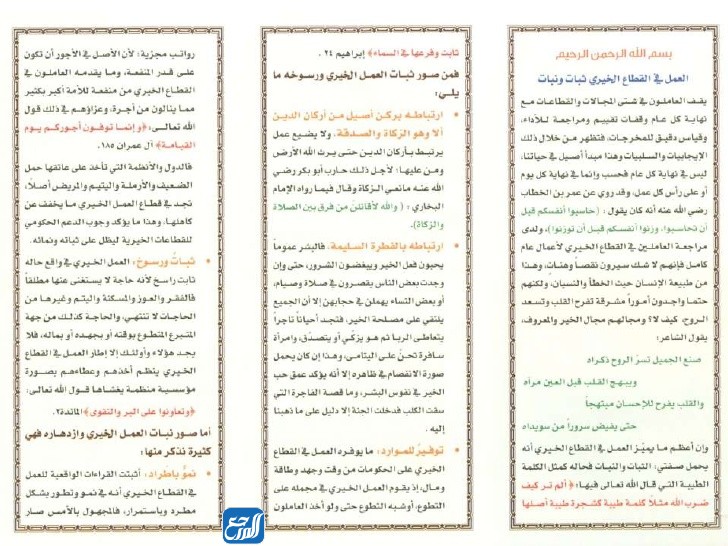 بسم الله الرحمن الرحيم
العمل في القطاع الخيري ثبات ونبات
يقف العاملون في شتى المجالات والقطاعات مع
نهاية كل عام وقفات تقييم ومراجعة للأداء،
وقياس دقيق للمخرجات، فتظهر من خلال ذلك
الإيجابيات والسلبيات وهذا مبدأ أصيل في حياتنا،
ليس في نهاية كل عام فحسب وإنما في نهاية كل يوم
أو على رأس كل عمل، وقد روي عن عمر بن الخطاب
رضي الله عنه أنه كان يقول : (حاسبوا أنفسكم قبل
أن تحاسبوا، وزنوا أنفسكم قبل أن توزنوا)، ولدى
مراجعة العاملين في القطاع الخيري لأعمال عام
كامل فإنهم لا شك سيرون نقصاً وهنات، وهذا
من طبيعة الإنسان حيث الخطأ والنسيان، ولكنهم
حتما واجدون أموراً مشرقة تفرح القلب وتسعد
الروح، كيف لا؟ ومجالهم مجال الخير والمعروف،
يقول الشاعر:
صنع الجميل تسرّ الروح ذكراه
ويبهج القلب قبل العين مرآه
والقلب يفرح للإحسان مبتهجاً
حتى يفيض سروراً من سويداه
وإن أعظم ما يميّز العمل في القطاع الخيري أنه
يحمل صفتي: الثبات والنبات فحاله كمثل الكلمة
الطيبة التي قال الله تعالى فيها: ﴿ألم تر كيف
ضرب الله مثلاً كلمة طيبة كشجرة طيبة أصلها
ثابت وفرعها في السماء﴾ إبراهيم ٢٤ .
فمن صور ثبات العمل الخيري ورسوخه ما
يلي:
• ارتباطه بركن أصيل من أركان الدين
ألا وهو الزكاة والصدقة، ولا يضيع عمل
يرتبط بأركان الدين حتى يرث الله الأرض
ومن عليها؛ لأجل ذلك حارب أبو بكر رضي
الله عنه مانعي الزكاة وقال فيما رواه الإمام
البخاري : ( والله لأقاتلن من فرق بين الصلاة
والزكاة).
• ارتباطه بالفطرة السليمة، فالبشر عموماً
يحبون فعل الخير ويبغضون الشرور، حتى وإن
وجدت بعض الناس يقصرون في صلاة وصيام،
أو بعض النساء يهملن في حجابهن إلا أن الجميع
يلتقي على مصلحة الخير، فتجد أحياناً تاجراً
يتعاطى الربا ثم هو يزكّي أو يتصدّق، وامرأة
سافرة تحنّ على اليتامى، وهذا إن كان يحمل
صورة الانفصام في ظاهره إلا أنه يؤكد عمق حب
الخير في نفوس البشر، وما قصة الفاجرة التي
سقت الكلب فدخلت الجنة إلا دليل على ما ذهبنا
إليه .
• توفير للموارد، ما يوفره العمل في القطاع
الخيري على الحكومات من وقت وجهد وطاقة
ومال، إذ يقوم العمل الخيري في مجمله على
التطوع، أو شبه التطوع حتى ولو أخذ العاملون
رواتب مجزية؛ لأن الأصل في الأجور أن تكون
على قدر المنفعة، وما يقدمه العاملون في
القطاع الخيري من منفعة للأمة أكبر بكثير
مما ينالون من أجرة، وعزاؤهم في ذلك قول
الله تعالى: ﴿وإنما توفون أجوركم يوم
القيامة﴾ آل عمران ١٨٥.
فالدول والأنظمة التي تأخذ على عاتقها حمل
الضعيف والأرملة واليتيم والمريض أصلًا،
تجد في قطاع العمل الخيري ما يخفف عن
كاهلها، وهذا ما يؤكد وجوب الدعم الحكومي
للقطاعات الخيرية ليظل على ثباته ونمائه.
• ثبات ورسوخ، العمل الخيري في واقع حاله
ثابت راسخ لأنه حاجة لا يستغنى عنها مطلقاً
فالفقر والعوز والمسكنة واليتم وغيرها من
الحاجات لا تنتهي، والحاجة كذلك من جهة
المتبرع المتطوع بوقته أو بجهده أو بماله، فلا
يجد هؤلاء وأولئك إلا إطار العمل في القطاع
الخيري ينظم أخذهم وعطاءهم بصورة
مؤسسية منظمة يغشاها قول الله تعالى:
﴿وتعاونوا على البر والتقوى﴾ المائدة٢.
أما صور نبات العمل الخيري وازدهاره فهي
كثيرة نذكر منها:
• نمو باطراد، أثبتت القراءات الواقعية للعمل
في القطاع الخيري أنه في نمو وتطور بشكل
مطرد وباستمرار، فالمجهول بالأمس صار
المرجع